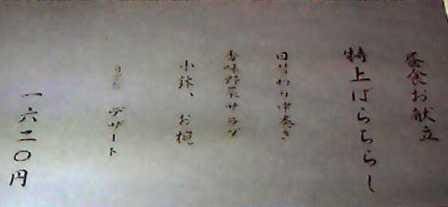 昼食お献立
特上ばらちらし
日替わり中巻き
香味野菜サラダ
小鉢、お椀
デザート
一六二〇円